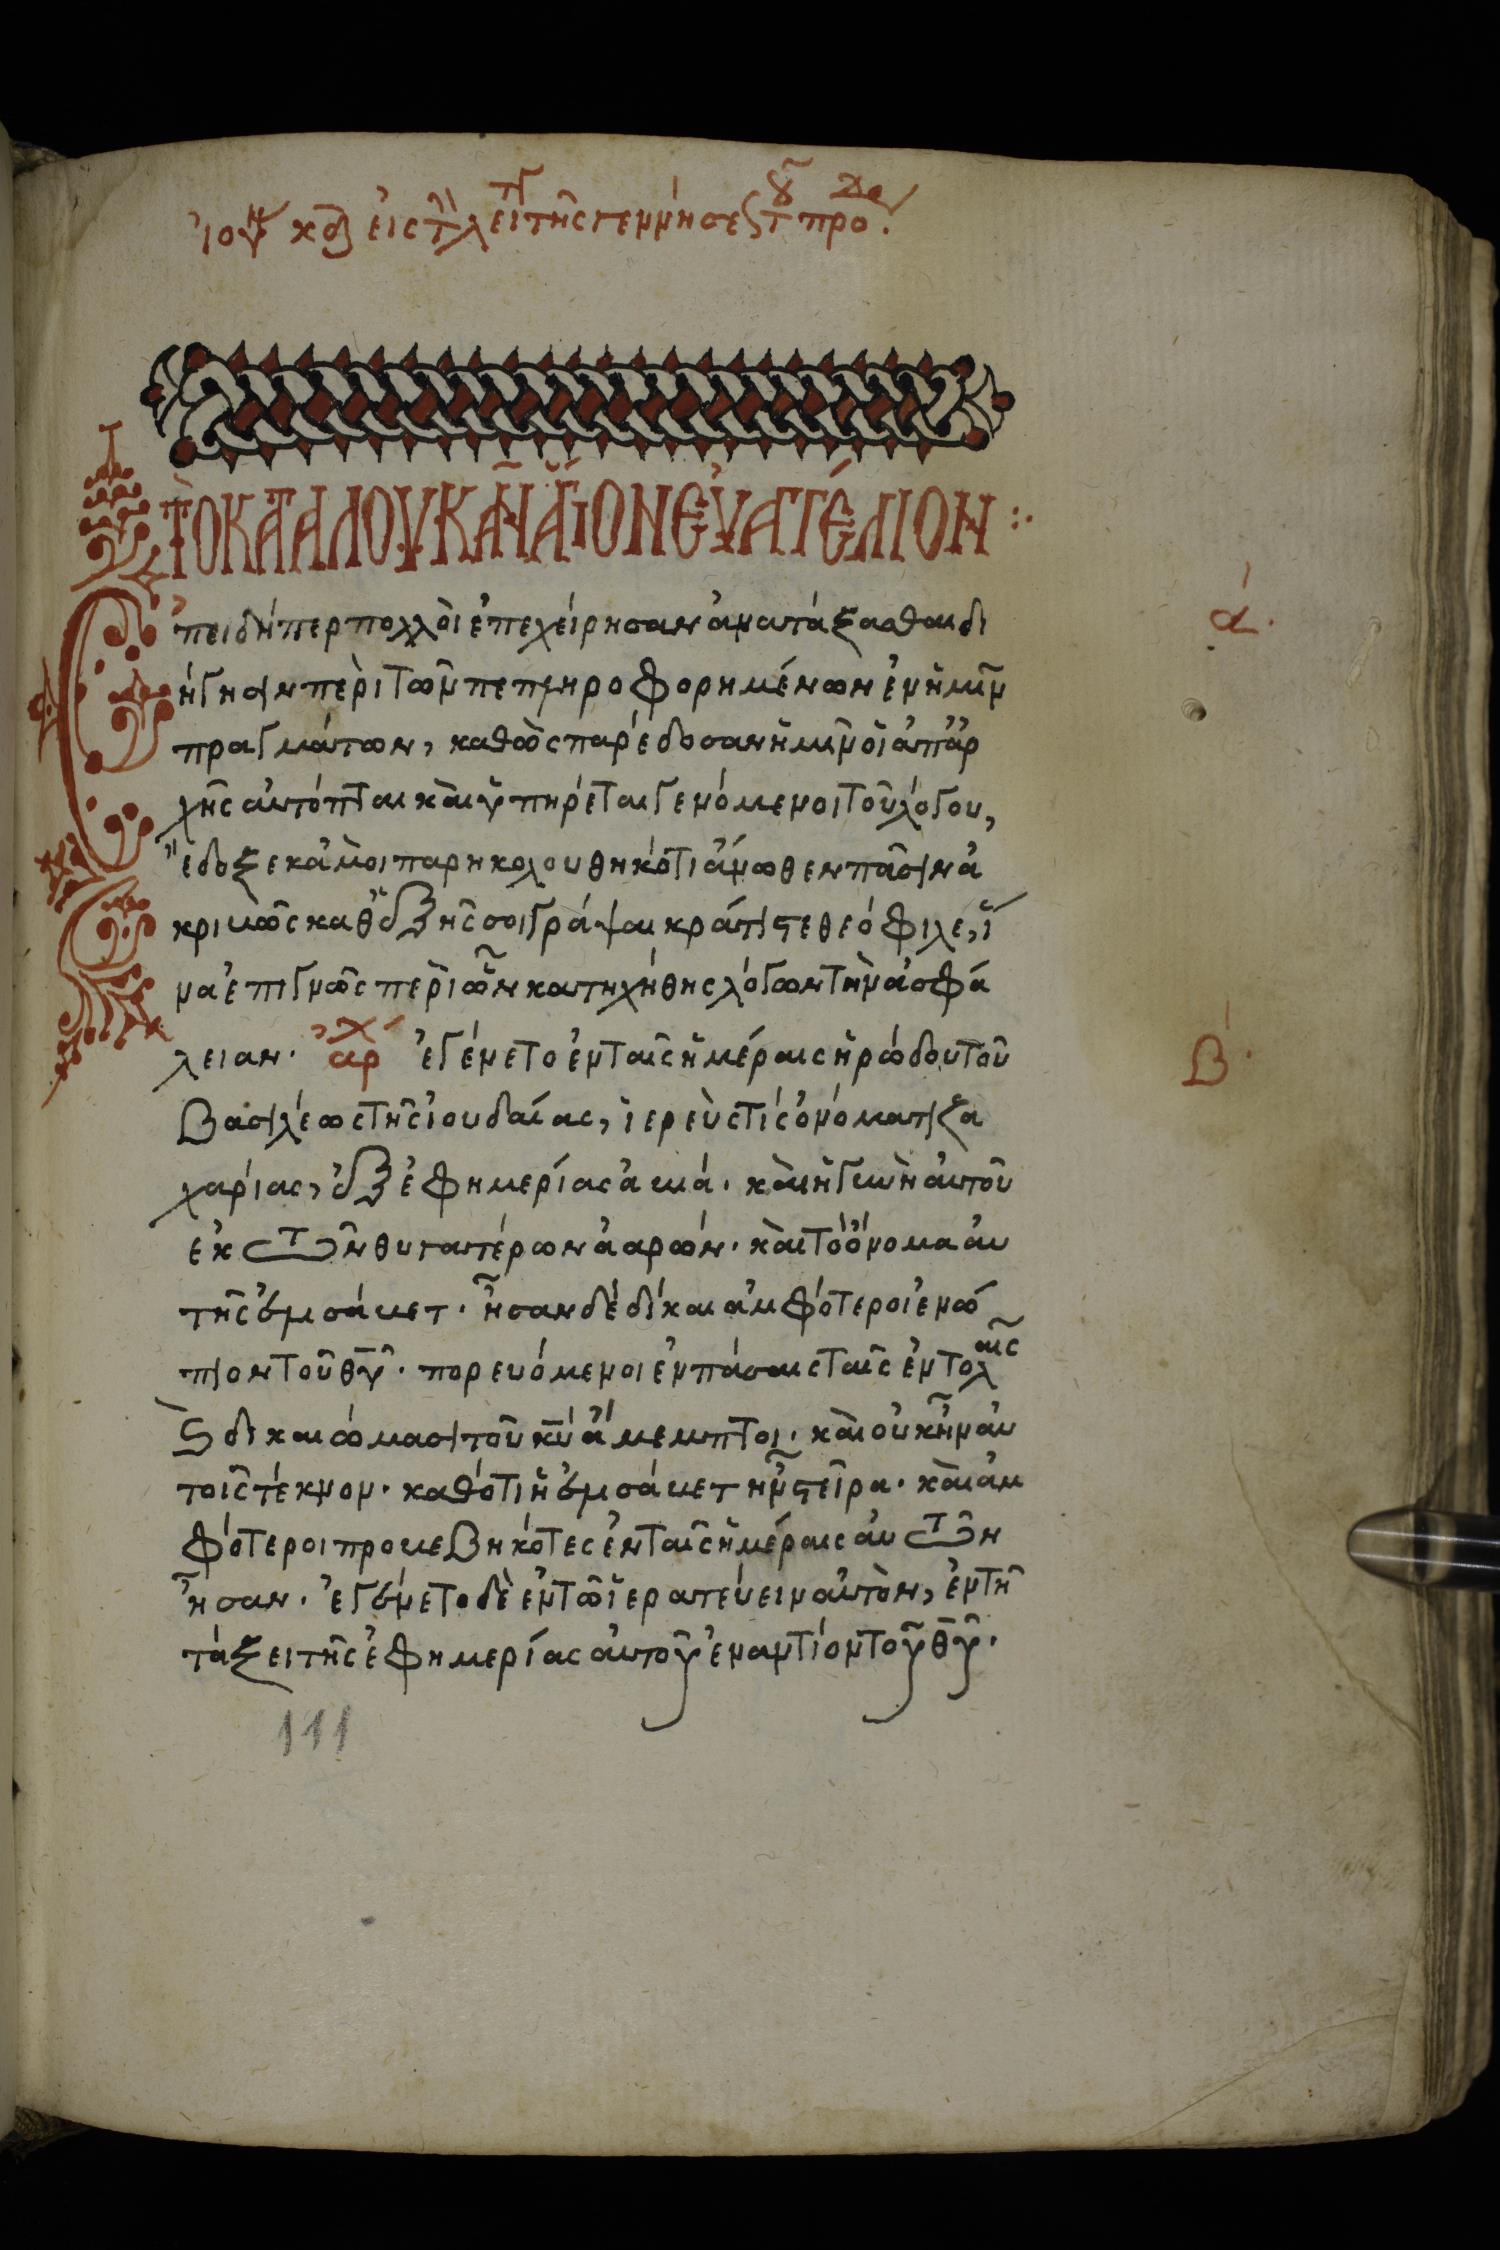 ἰουν κδ εἰς τὴν λειτ τῆς γεννήσε τοῦ προδ.
ΤῸ ΚΑΤᾺ ΛΟΥΚᾶΝ ἍΓΙΟΝ ΕὐΑΓΓΈΛΙΟΝ :·
ἐπειδήπερ πολλοὶ ἐπεχείρησαν ἀνατάξασθαι δι
α΄.
ήγησιν περὶ τῶν πεπληροφορημένων ἐν ἡμῖν
πραγμάτων, καθὼς παρέδοσαν ἡμῖν οἱ ἀπ ἀρ
χῆς αὐτόπται καὶ ὑπηρέται γενόμενοι τοῦ λόγου,
ἔδοξε κἀμοὶ παρηκολουθηκότι ἄνωθεν πᾶσιν ἀ
κριβῶς καθ ἑξῆς σοι γράψαι κράτιστε θεόφιλε, ἵ
να ἐπιγνῶς περὶ ὧν κατηχήθης λόγων τὴν ἀσφά
λειαν. ἀρχ ἐγένετο ἐν ταῖς ἡμέραις ἡρώδου τοῦ
β΄.
βασιλέως τῆς ἰουδαίας, ἱερεύς τίς ὀνόματι ζα
χαρίας, ἐξ ἐφημερίας ἀβιά. καὶ ἡ γυνὴ αὐτοῦ
ἐκ τῶν θυγατέρων ἀαρών. καὶ τὸ ὄνομα αὐ
τῆς ἐλισάβετ. ἦσαν δὲ δίκαιοι ἀμφότεροι ἐνώ
πιον τοῦ θυ. πορευόμενοι ἐν πάσαις ταῖς ἐντολαῖς
ϗ δικαιώμασι τοῦ κυ ἄμεμπτοι. καὶ οὐκ ἦν αὐ
τοῖς τέκνον. καθότι ἡ ἐλισάβετ ἦν στεῖρα. καὶ ἀμ
φότεροι προβεβηκότες ἐν ταῖς ἡμέραις αὐτῶν
ἦσαν. ἐγένετο δὲ ἐν τῶ ἱερατεύειν αὐτὸν, ἐν τῆ
τάξει τῆς ἐφημερίας αὐτοῦ ἐναντίον τοῦ θυ.
111